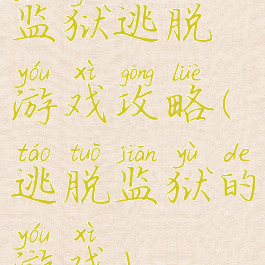 监狱逃脱
yóu xì gōng lüè
游戏攻略(
táo tuō jiān yù de
逃脱监狱的
yóu xì
游戏)